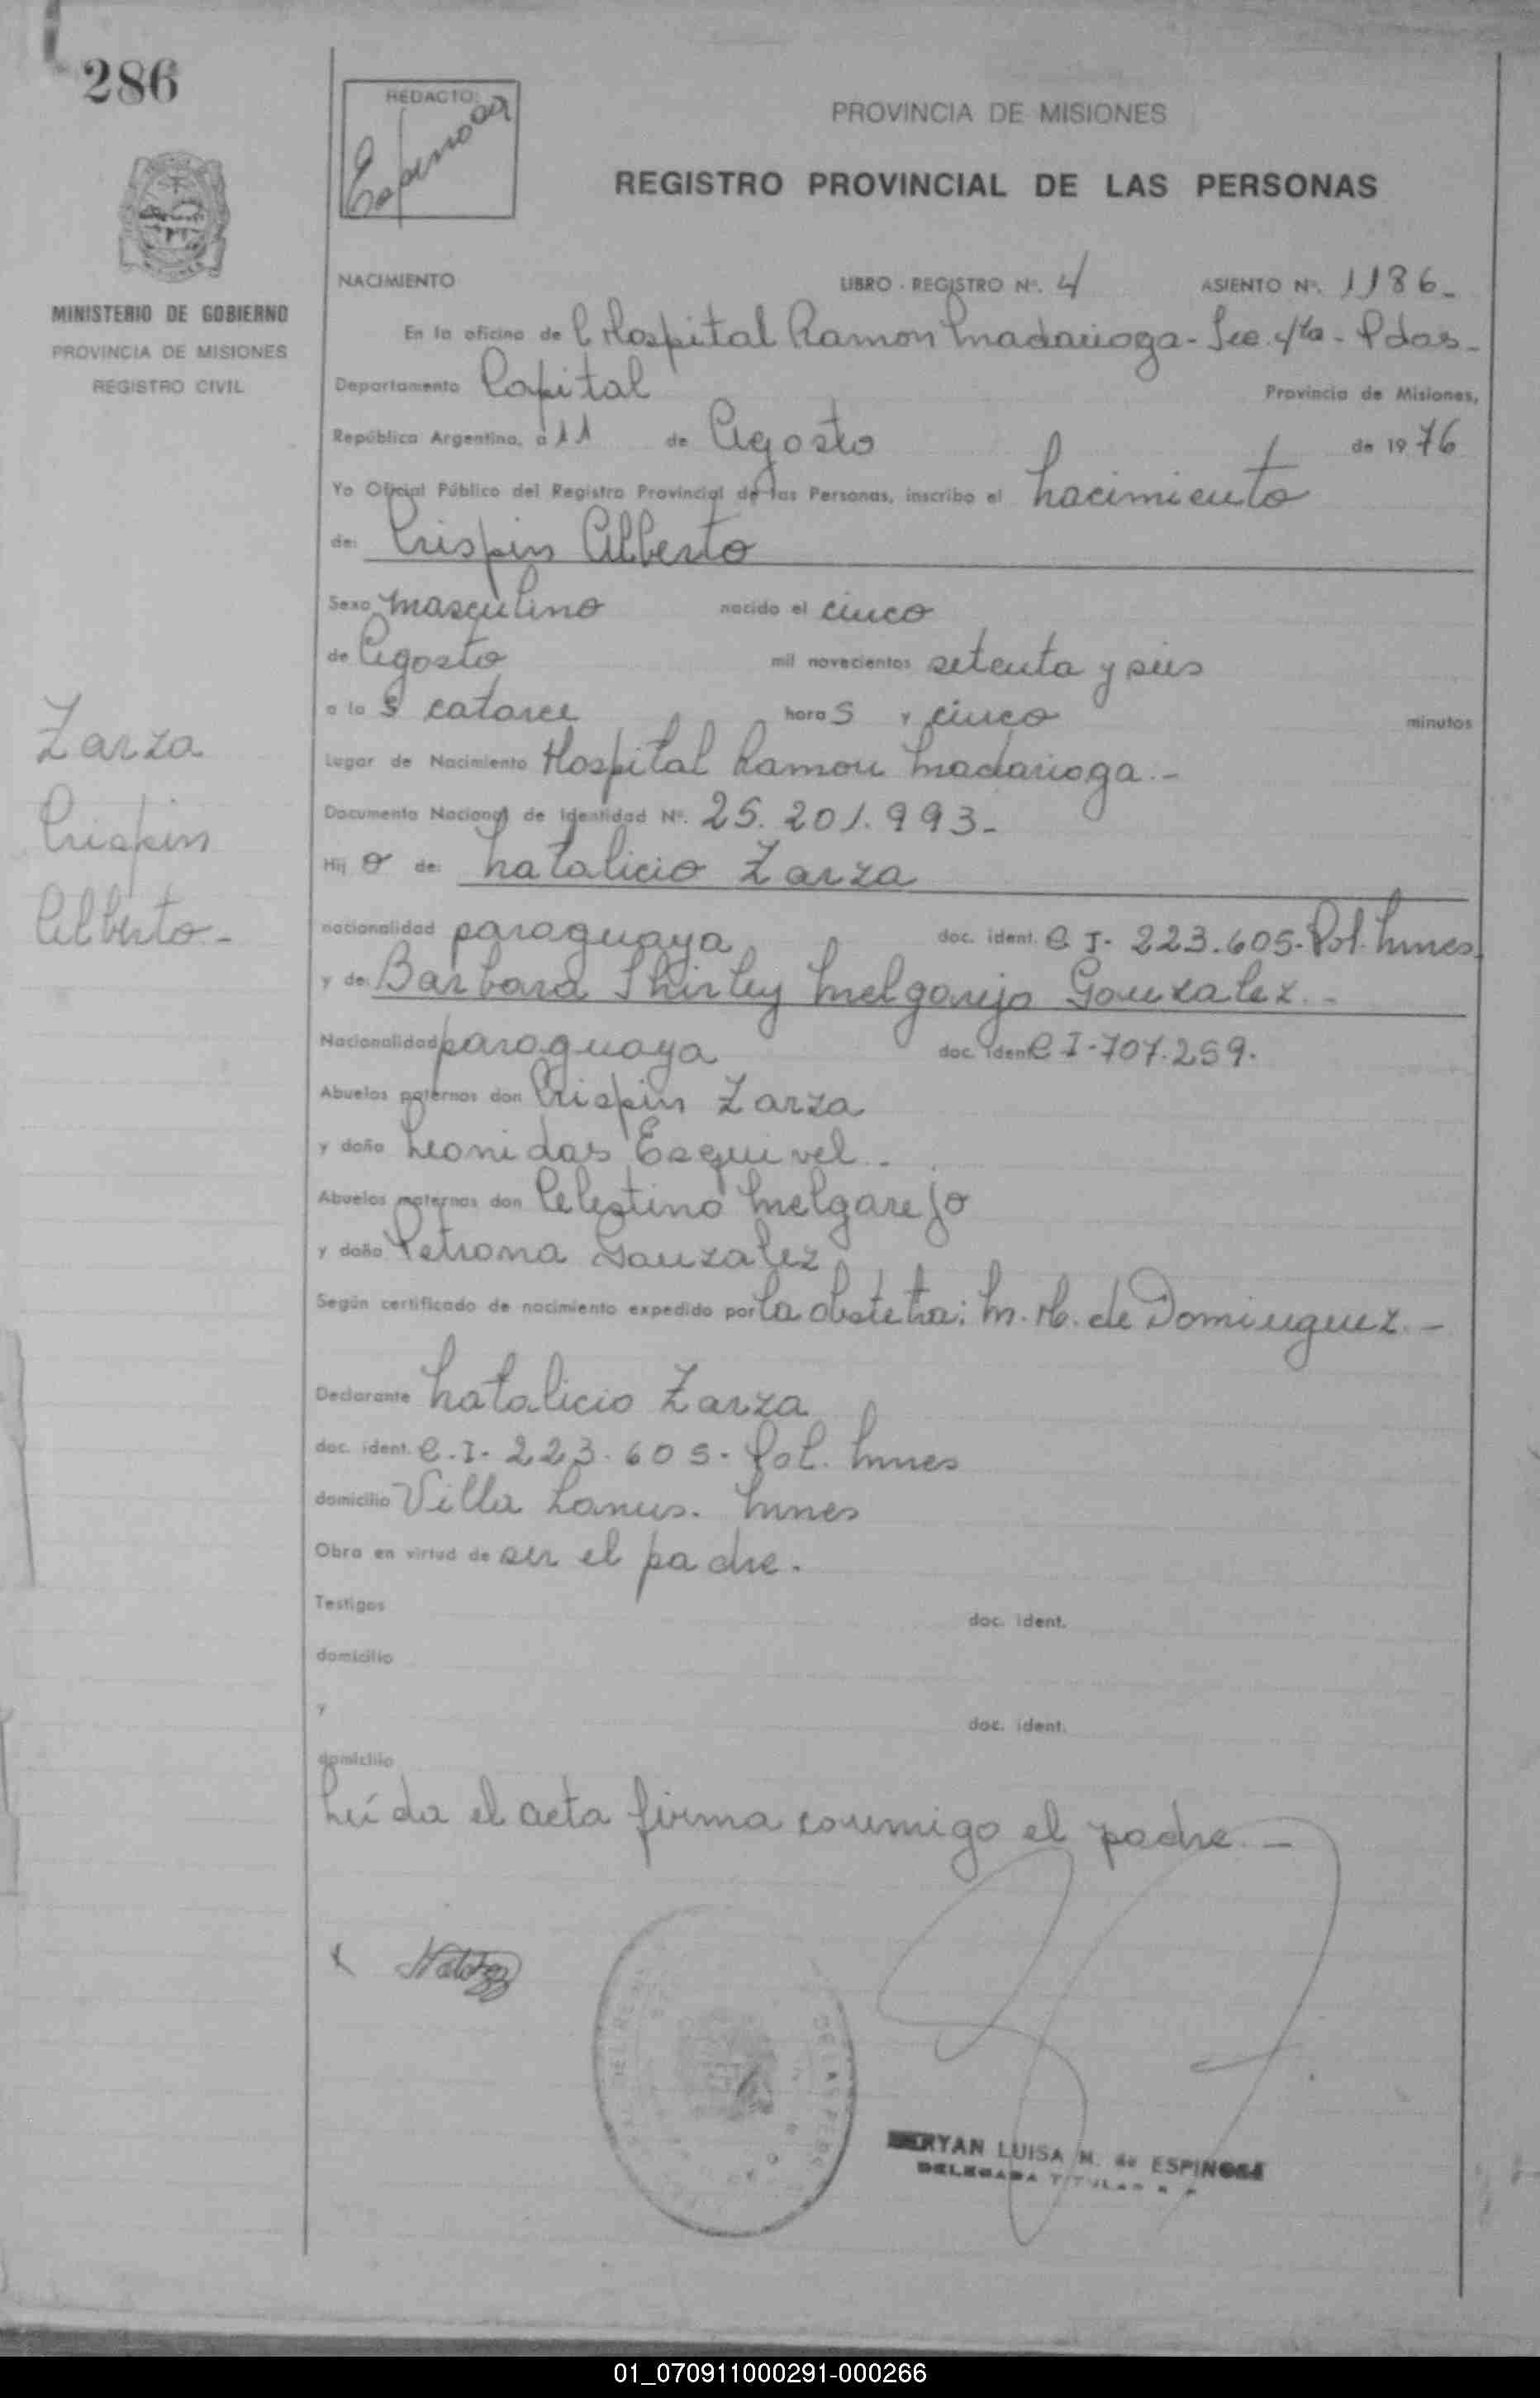 286
REDACTO:
Espinosa
PROVINCIA DE MISIONES
REGISTRO PROVINCIAL DE LAS PERSONAS
MINISTERIO DE GOBIERNO
PROVINCIA DE MISIONES
REGISTRO CIVIL
NACIMIENTO LIBRO - REGISTRO Nº. 4 ASIENTO Nº. 1186_
En la oficina de l Hospital Ramon Madariaga - Sec. 4ta - Pdas -
Departamento Capital Provincia de Misiones,
República Argentina, a 11 de Agosto de 19 76
Yo Oficial Público del Registro Provincial de las Personas, inscribo el Nacimiento
de: Crispin Alberto
Sexo masculino nacido el cinco
de Agosto mil novecientos setenta y seis
a la s catorce hora s y cinco minutos
Lugar de Nacimiento Hospital Ramon Madariaga.-
Documento Nacional de Identidad Nº. 25.201.993-
Hij o de: Natalicio Zarza
nacionalidad paraguaya doc. ident. C I- 223.605- Pol. Mnes
y de: Barbara Shirley Melgarejo Gonzalez.-
Nacionalidad paraguaya doc. ident C I-707.259.
Abuelos paternos don Crispin Zarza
y doña Leonidas Esquivel -
Abuelos maternos don Celestino Melgarejo
y doña Petrona Gonzalez
Según certificado de nacimiento expedido por la obstetra: M. H. de Dominguez.-
Declarante Natalicio Zarza
doc. ident. C.I- 223.605- Pol. Mnes
domicilio Villa Lanus. Mnes
Obra en virtud de ser el padre.
Testigos doc. ident.
domicilio
y doc. ident.
domicilio
Leída el acta firma conmigo el padre.-
Zarza
Crispin
Alberto-
LUISA M. de ESPINOSA
DELEGADA TITULAR
01_070911000291-000266